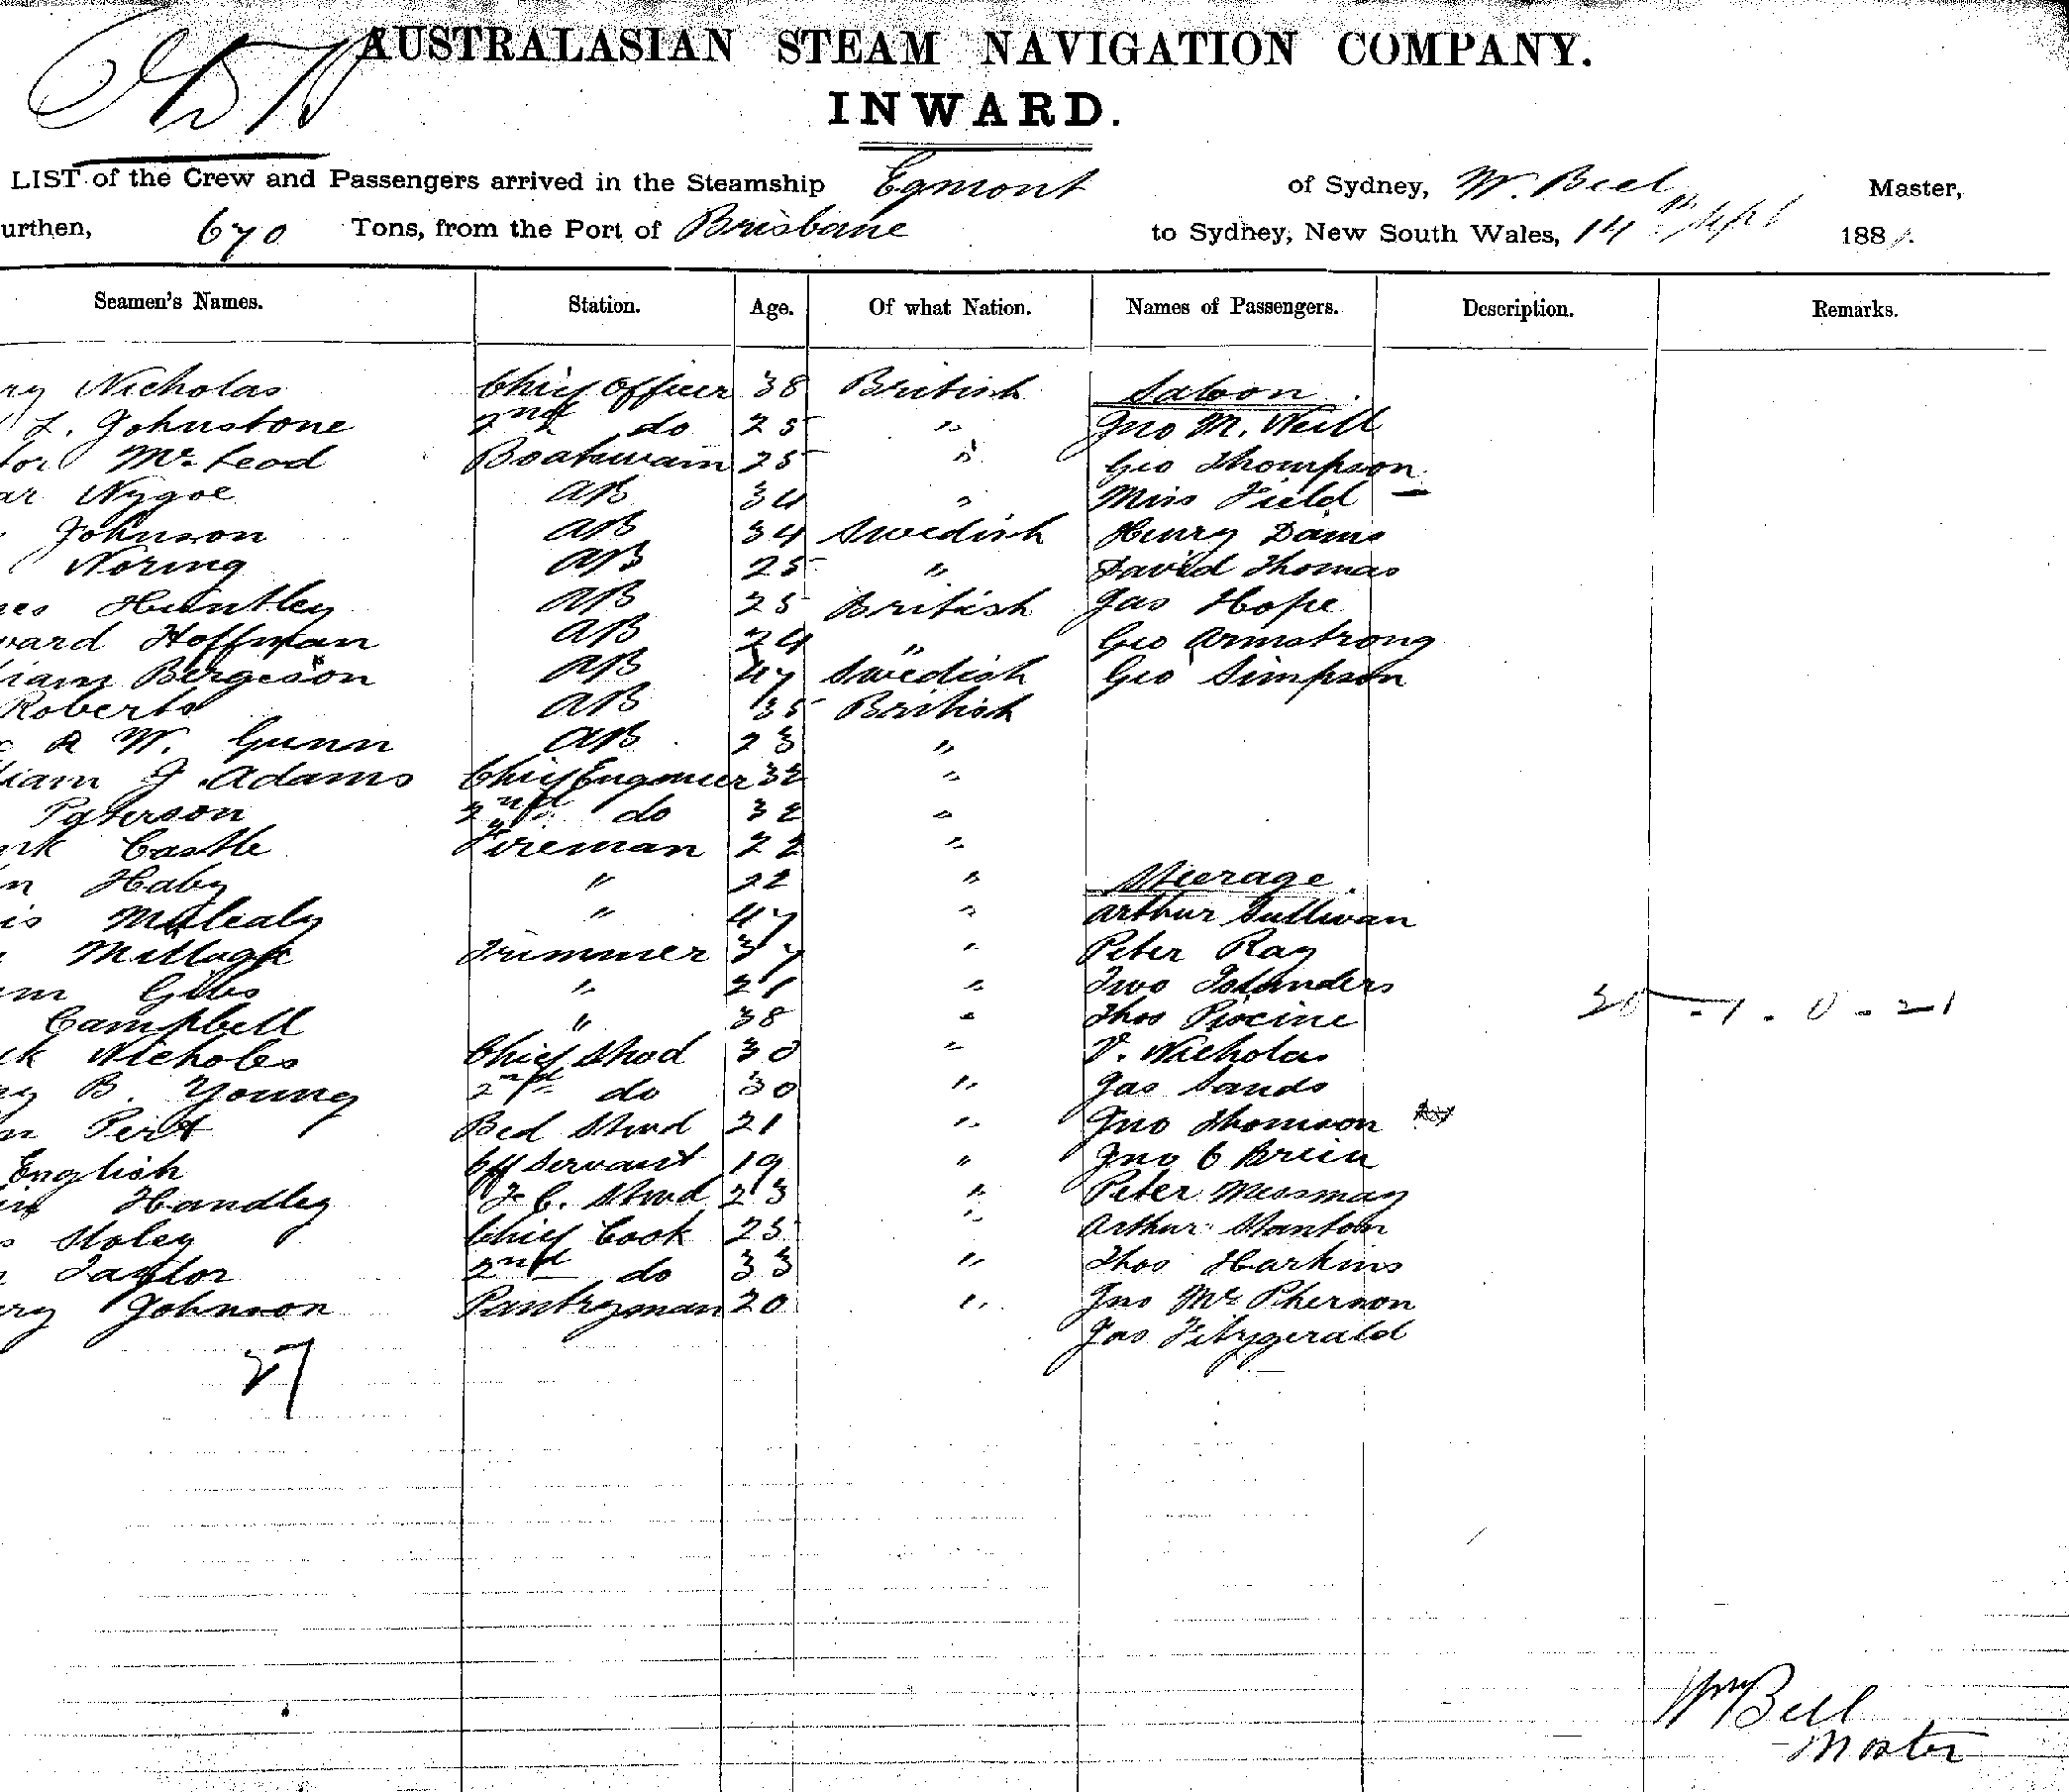 AUSTRALASIAN STEAM NAVIGATION COMPANY.
INWARD.
LIST of the Crew and Passengers arrived in the Steamship Egmont of Sydney, W. Beel Master,
urthen, 670 Tons, from the Port of Brisbane to Sydney, New South Wales, 14 Sept 188
Seamen's Names. Station. Age. Of what Nation. Names of Passengers. Description. Remarks.
ry Nicholas Chief Officer 38 British Saloon
L. Johnstone 2nd do 25 " Jno M. Neill
tor McLeod Boatswain 25 " Geo Thompson
ar Nygoe AB 34 " Miss Field —
Johnson AB 34 Swedish Henry Dams
Noring AB 25 " David Thomas
es Huntley AB 25 British Jas Hope
ward Hoffman AB 24 " Geo Armstrong
liam Bergeson AB 47 Swedish Geo Simpson
Roberts AB 35 British
R W. Gunn AB 23 "
liam J. Adams Chief Engineer 32 "
Paterson 2nd do 32 "
rk Castle Fireman 22 "
n Haby " 22 " Steerage.
is Mulealy " 47 " Arthur Sullivan
Trimmer 37 " Peter Ray
m Gibbs " 21 " Two Islanders
Campbell " 38 " Thos Piscine 30 - 1 . 0 - 21
ck Nicholes Chief Stwd 30 " V. Nicholas
y B. Young 2nd do 30 " Jas Sands
n Pert Bed Stwd 21 " Jno Thomson
English Off Servant 19 " Jno O Brien
Handley F. C. Stwd 23 " Peter Messmay
s Stoley Chief Cook 25 " Arthur Stanton
Taylor 2nd do 33 " Thos Harkins
ry Johnson Pantryman 20 " Jno McPherson
Jas Fitzgerald
27
Wm Bell
Master